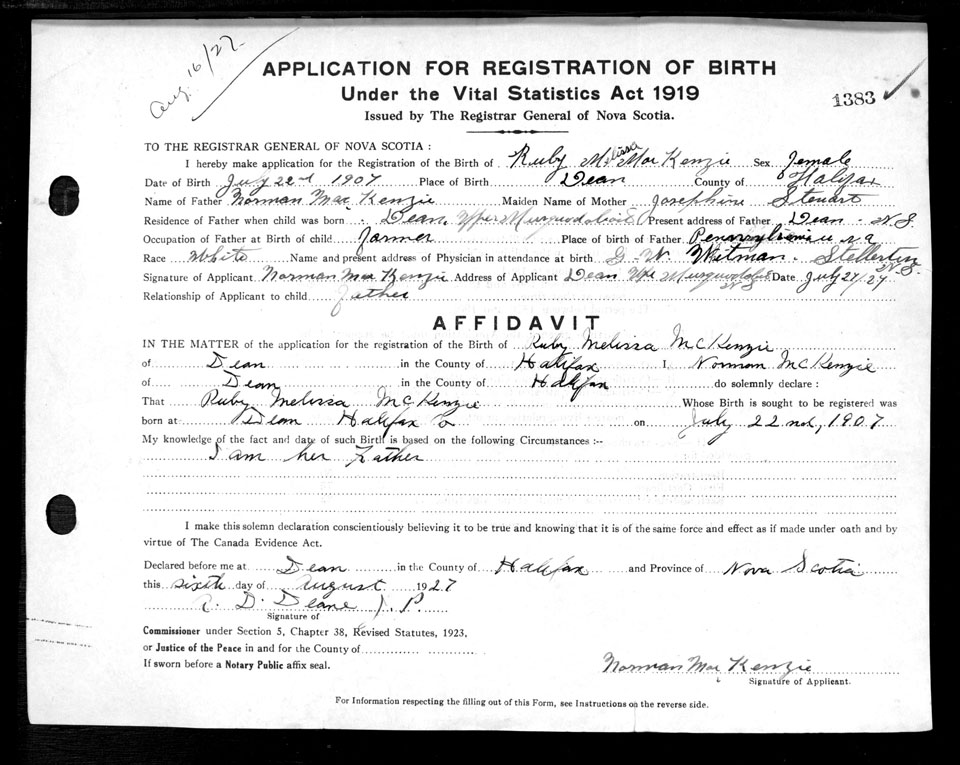 Aug. 16/27
APPLICATION FOR REGISTRATION OF BIRTH
Under the Vital Statistics Act 1919
1383
Issued by The Registrar General of Nova Scotia.
TO THE REGISTRAR GENERAL OF NOVA SCOTIA :
I hereby make application for the Registration of the Birth of Ruby Melissa MacKenzie Sex Female
Date of Birth July 22nd 1907 Place of Birth Dean County of Halifax
Name of Father Norman MacKenzie Maiden Name of Mother Josephine Stewart
Residence of Father when child was born Dean, Upper Musquodoboit Present address of Father Dean N.S.
Occupation of Father at Birth of child Farmer Place of birth of Father Pennsylvania
Race White Name and present address of Physician in attendance at birth G. W. Whitman Stellerton N.S.
Signature of Applicant Norman MacKenzie Address of Applicant Dean Upr Musquodoboit N.S Date July 27/27
Relationship of Applicant to child Father
AFFIDAVIT
IN THE MATTER of the application for the registration of the Birth of Ruby Melissa McKenzie
of Dean in the County of Halifax I Norman McKenzie
of Dean in the County of Halifax do solemnly declare :
That Ruby Melissa McKenzie Whose Birth is sought to be registered was
born at Dean Halifax Co on July 22nd, 1907
My knowledge of the fact and date of such Birth is based on the following Circumstances :--
I am her Father
I make this solemn declaration conscientiously believing it to be true and knowing that it is of the same force and effect as if made under oath and by
virtue of The Canada Evidence Act.
Declared before me at Dean in the County of Halifax and Province of Nova Scotia
this sixth day of August 1927
D. Deane J. P.
Signature of
Commissioner under Section 5, Chapter 38, Revised Statutes, 1923,
or Justice of the Peace in and for the County of
If sworn before a Notary Public affix seal.
Norman MacKenzie
Signature of Applicant.
For Information respecting the filling out of this Form, see Instructions on the reverse side.